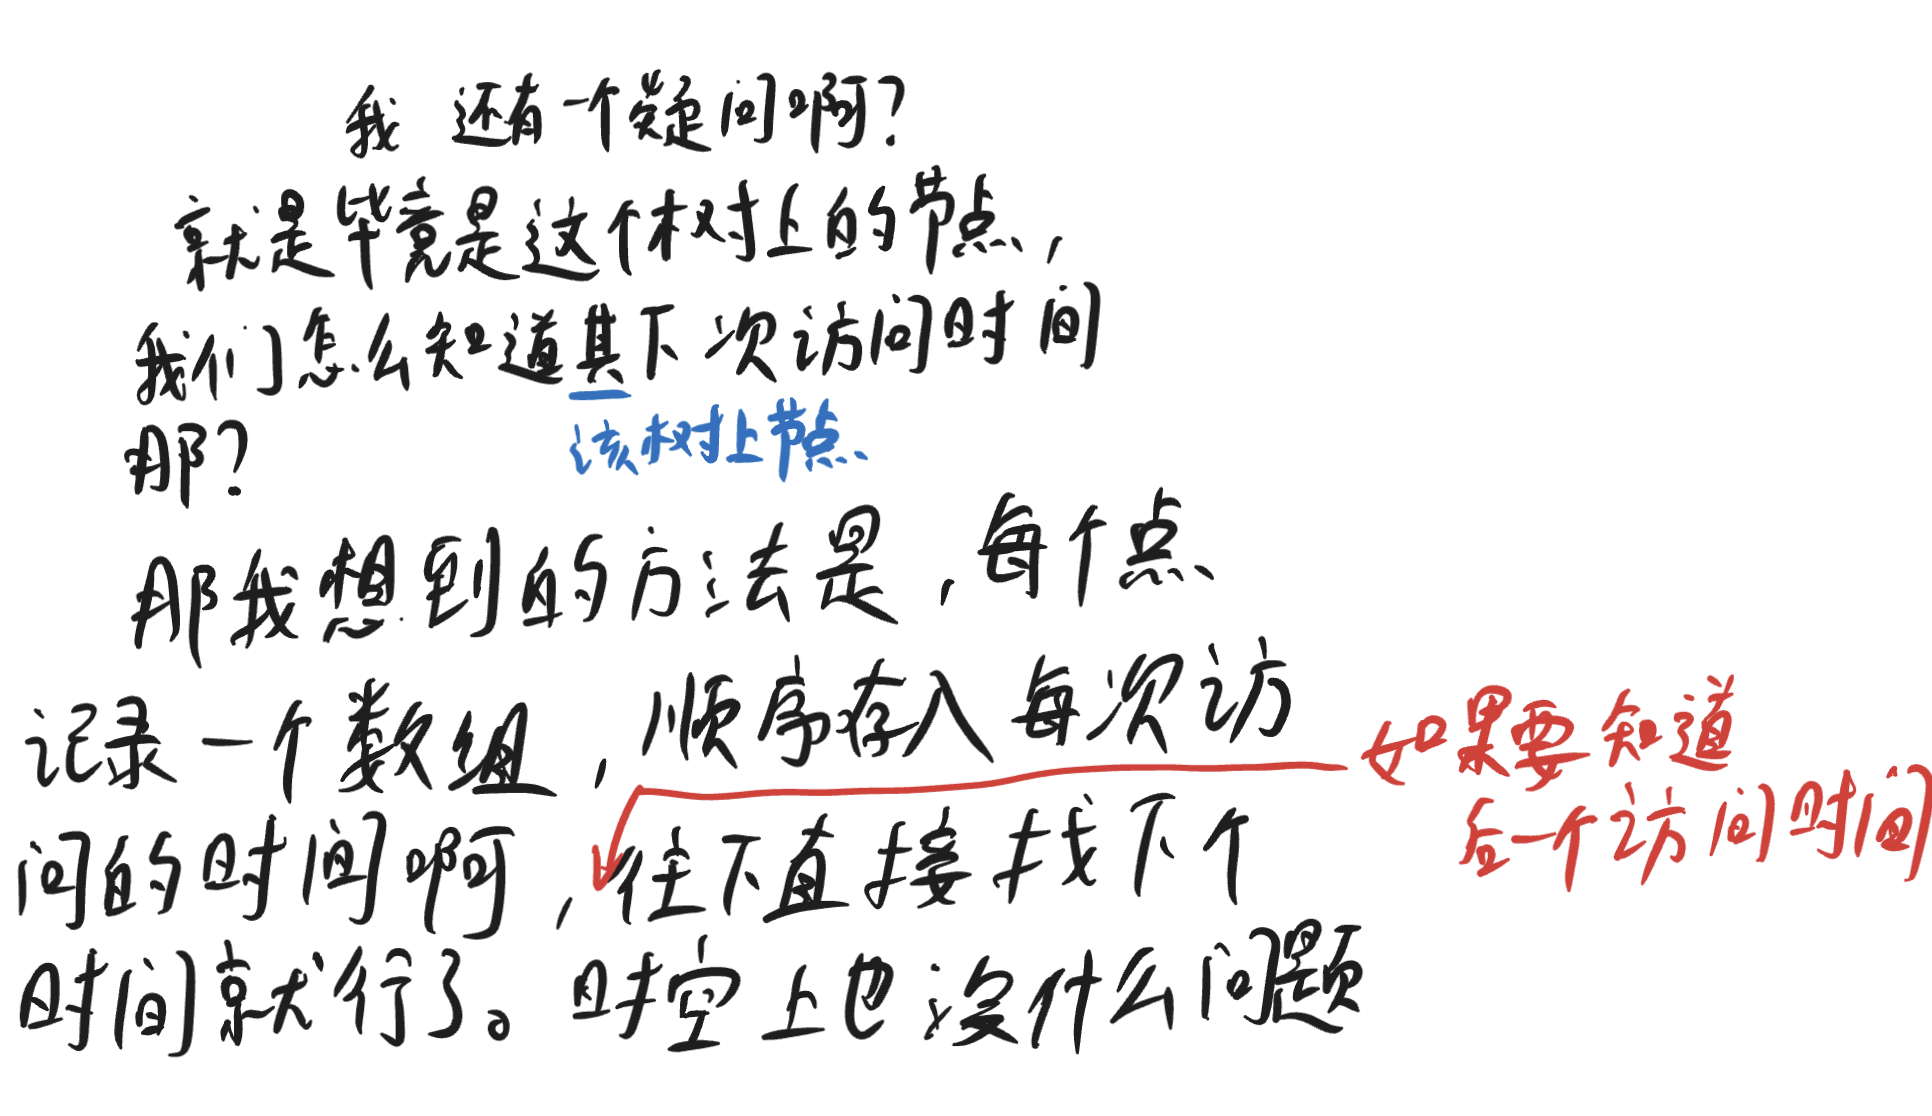 我 还有一个疑问啊?
就是毕竟是这个树上的节点,
我们怎么知道其下次访问时间
那?
该树上节点
那我想到的方法是,每个点
记录一个数组,顺序存入每次访
如果要知道
后一个访问时间
问的时间啊,往下直接找下个
时间就行了。时空上也没什么问题